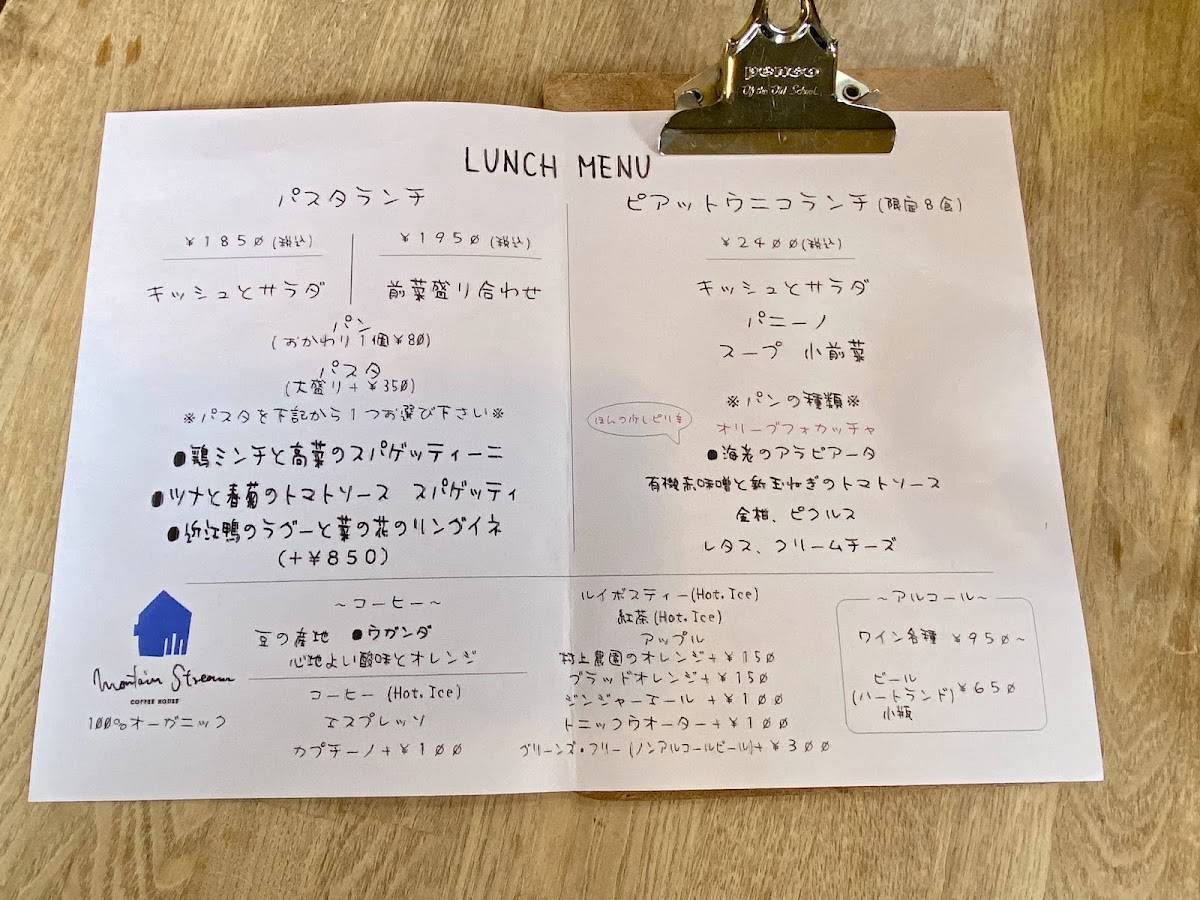 penco
Off the Old School.
LUNCH MENU
パスタランチ
¥1850(税込)
¥1950(税込)
キッシュとサラダ
前菜盛り合わせ
パン
(おかわり1個¥80)
パスタ
(大盛り+¥350)
※パスタを下記から1つお選び下さい※
●鶏ミンチと高菜のスパゲッティーニ
●ツナと春菊のトマトソース スパゲッティ
●近江鴨のラグーと菜の花のリングイネ
(+¥850)
ピアットウニコランチ(限定8食)
¥2400(税込)
キッシュとサラダ
パニーノ
スープ 小前菜
※パンの種類※
ほんの少しピリ辛
オリーブフォカッチャ
●海老のアラビアータ
有機赤味噌と新玉ねぎのトマトソース
金柑、ピクルス
レタス、クリームチーズ
Mountain Stream
COFFEE HOUSE
100%オーガニック
~コーヒー~
豆の産地 ●ウガンダ
心地よい酸味とオレンジ
コーヒー (Hot.Ice)
エスプレッソ
カプチーノ+¥100
ルイボスティー(Hot.Ice)
紅茶(Hot.Ice)
アップル
村上農園のオレンジ+¥150
ブラッドオレンジ+¥150
ジンジャーエール +¥100
トニックウオーター+¥100
グリーンズ・フリー (ノンアルコールビール)+¥300
~アルコール~
ワイン各種 ¥950~
ビール
(ハートランド)¥650
小瓶